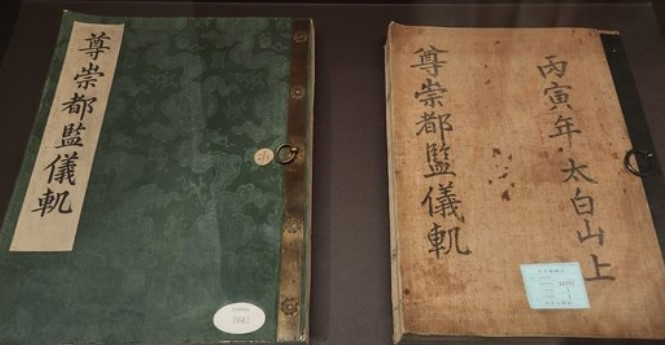 尊崇都監儀軌
尊崇都監儀軌
丙寅年 太白山上